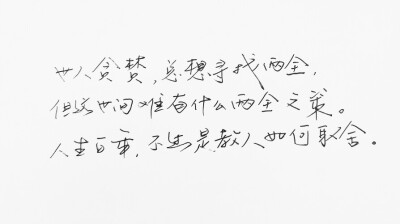 世人贪婪，总想寻找两全，
但这世间难有什么两全之策。
人生百事，不过是教人如何取舍。